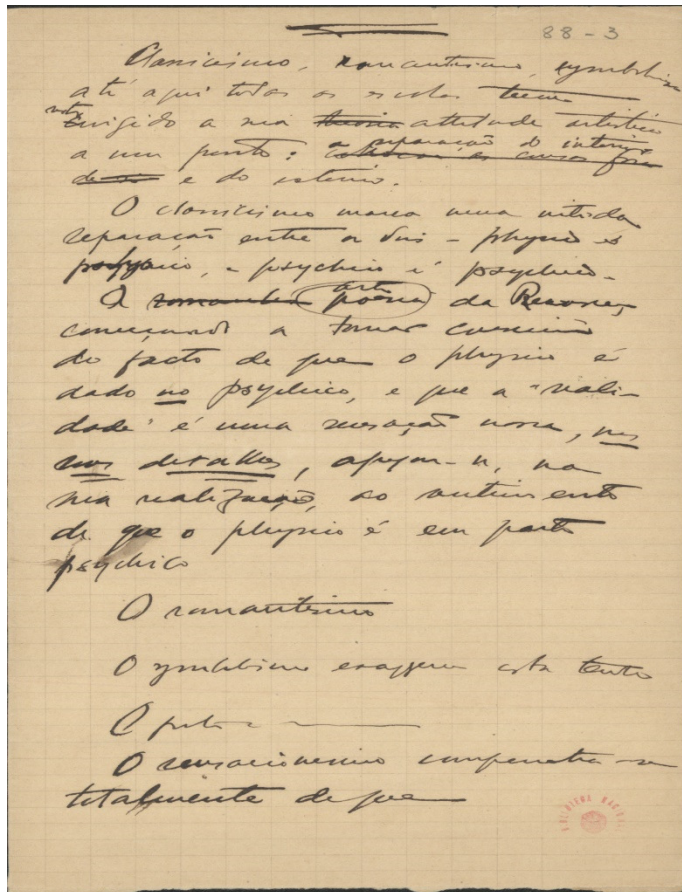 88-3
Classicismo, romantismo, symbolismo,
até aqui todas as escolas teem
dirigido a sua attitude artistica
a um ponto: a separação do interior
e do exterior.
O classicismo marca uma nitida
separação entre os dois - physico é
physico, e psychico é psychico.
A arte poesia da Renascença
começando a tomar consciencia
do facto de que o physico é
dado no psychico, e que a "reali-
dade" é uma sensação nossa, nos
seus detalhes, apoya-se, na
sua realização, ao sentimento
de que o physico é em parte
psychico
O romantismo
O symbolismo exaggera esta
O
O sensacionismo compenetra-se
totalmente de que